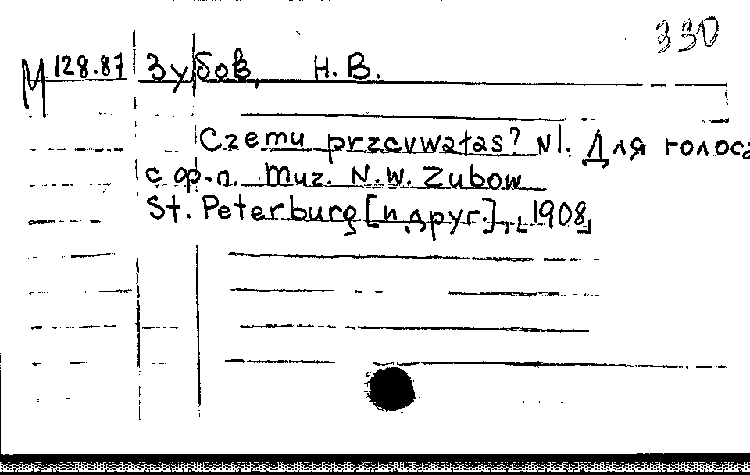 330
М 128.87 Зубов, Н.В.
Czemu przcvwałas? N1. Для голоса
с ф-п. Muz. N.W. Zubow
St. Peterburg [и друг.], 1908